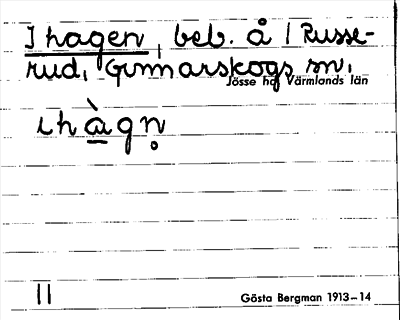 I hagen, beb. å 1 Russe-
rud, Gunnarskogs sn,
Jösse hd, Värmlands län
ihàgn̥
11
Gösta Bergman 1913–14